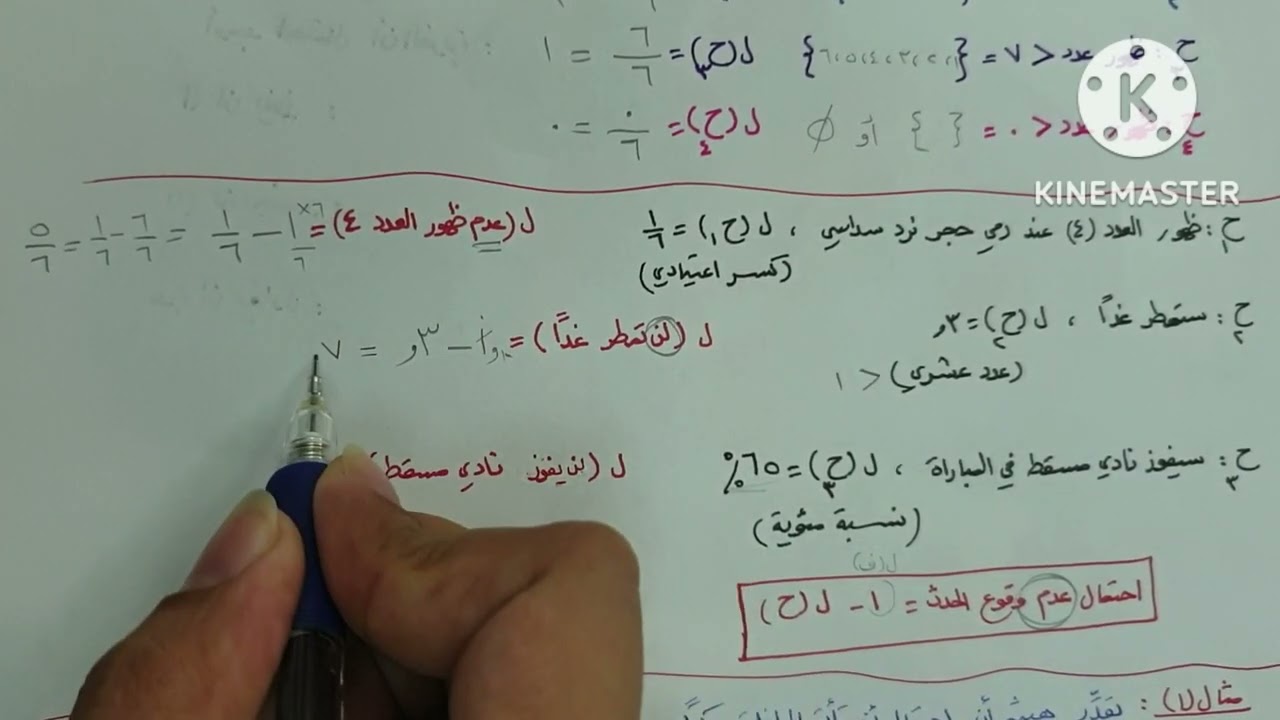 عدد < ٧ = {١،٢،٣،٤،٥،٦} ل(ح٣) = ٦/٦ = ١
ح٤ : عدد < ٠ = { } أو ∅ ل(ح٤) = ٠/٦ = ٠
KINEMASTER
ح١ : ظهور العدد (٤) عند رمي حجر نرد سداسي ، ل(ح١) = ١/٦
ل (عدم ظهور العدد ٤) = ١ - ١/٦ = ٦/٦ - ١/٦ = ٥/٦
(كسر اعتيادي)
ح٢ : ستمطر غداً ، ل(ح٢) = ٣و
ل (لن تمطر غداً) = ١و٠ - ٣و = ٧
(عدد عشري) < ١
ح٣ : سيفوز نادي مسقط في المباراة ، ل(ح٣) = ٦٥%
ل (لن يفوز نادي مسقط)
(نسبة مئوية)
ل(ف)
احتمال عدم وقوع الحدث = ١ - ل(ح)
مثال(١) :